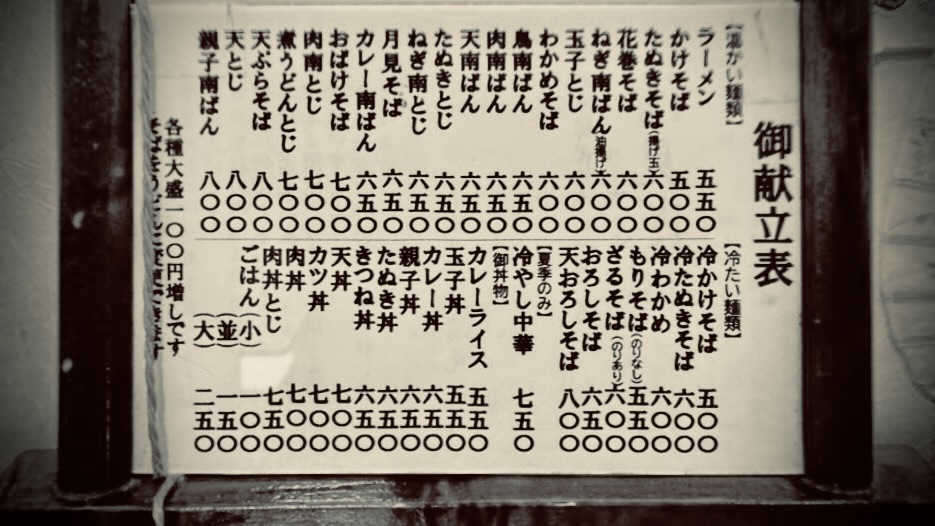 御献立表
【温かい麺類】
ラーメン 五五〇
かけそば 五〇〇
たぬきそば(揚げ玉) 六〇〇
花巻そば 六〇〇
ねぎ南ばん(油揚げ) 六〇〇
玉子とじ 六〇〇
わかめそば 六〇〇
鳥南ばん 六五〇
肉南ばん 六五〇
天南ばん 六五〇
たぬきとじ 六五〇
ねぎ南とじ 六五〇
月見そば 六五〇
カレー南ばん 六五〇
おばけそば 七〇〇
肉南とじ 七〇〇
煮うどんとじ 七〇〇
天ぷらそば 八〇〇
天とじ 八〇〇
親子南ばん 八〇〇
【冷たい麺類】
冷かけそば 五〇〇
冷たぬきそば 六〇〇
冷わかめ 六〇〇
もりそば(のりなし) 五五〇
ざるそば(のりあり) 六〇〇
おろしそば 六五〇
天おろしそば 八〇〇
【夏季のみ】
冷やし中華 七五〇
【御丼物】
カレーライス 五五〇
玉子丼 五五〇
カレー丼 六五〇
親子丼 六五〇
たぬき丼 六五〇
きつね丼 六五〇
天丼 七〇〇
カツ丼 七〇〇
肉丼 七〇〇
肉丼とじ 七五〇
ごはん(小) 一〇〇
(並) 一五〇
(大) 二五〇
各種大盛一〇〇円増しです